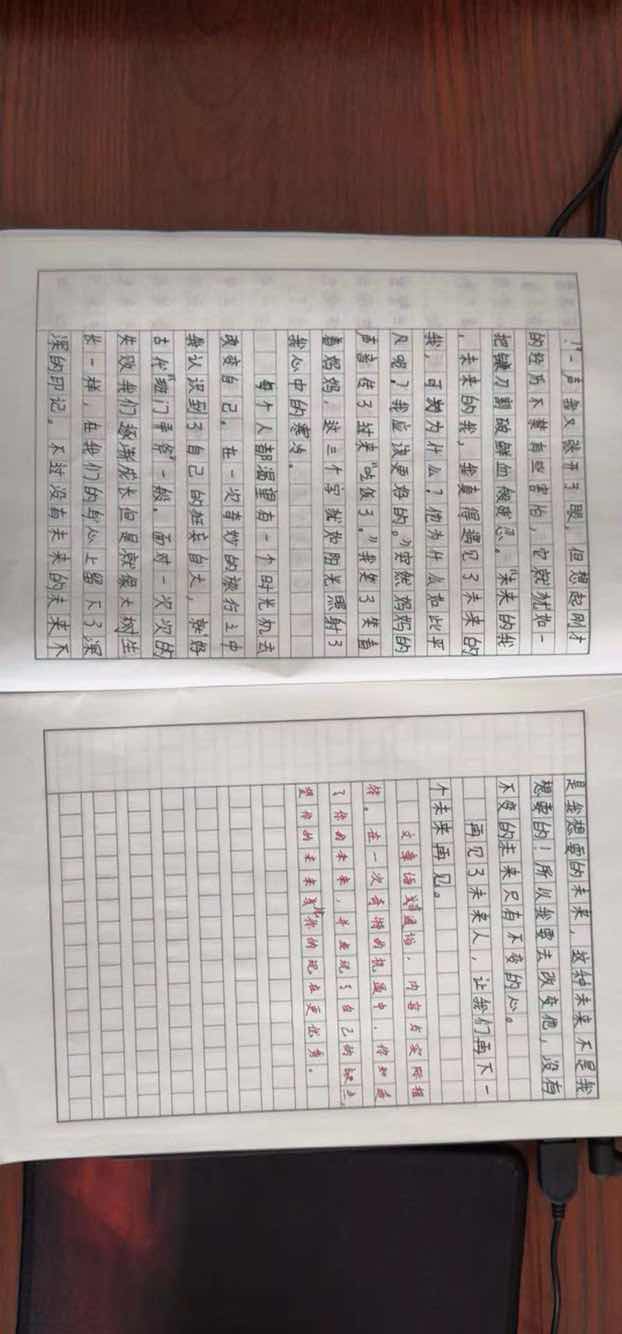 ！”一声我又张开了眼，但想起刚才
的经历不禁有些害怕，它就犹如一
把镰刀割破鲜血般疼忍。“未来的我
，未来的我，我真得遇见了未来的
我，可为什么？他为什么如此平
凡呢？我应该更好的。”突然妈妈的
声音传了过来“吃饭了。”我笑了笑看
着妈妈，这三个字就如阳光照射了
我心中的寒冰。
每个人都渴望有一个时光机去
改变自己。在一次奇妙的旅行之中
我认识到了自己的狂妄自大，就好
古代“班门弄斧”一般。面对一次次的
失败我们逐渐成长但是就像大树生
长一样，在我们的身心上留下了深
深的印记。不过没有未来的未来不
是我想要的未来，这种未来不是我
想要的！所以我要去改变他，没有
不变的未来只有不变的心。
再见了未来人，让我们再下一
个未来再见。
文章语言通俗，内容与实际相
符。在一次奇特的机遇中，你知道
了你的未来，并发现了自己的缺点，
望你的未来或你的现在更优秀。